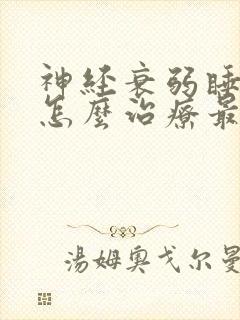 神经衰弱睡
怎麼治療最
湯姆奥戈尔曼